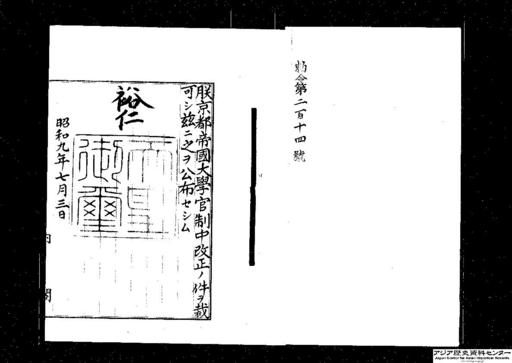 勅令第二百十四號
朕京都帝國大學官制中改正ノ件ヲ裁
可シ玆ニ之ヲ公布セシム
裕仁
天皇御璽
昭和九年七月三日
内閣
アジア歴史資料センター
Japan Center for Asian Historical Records